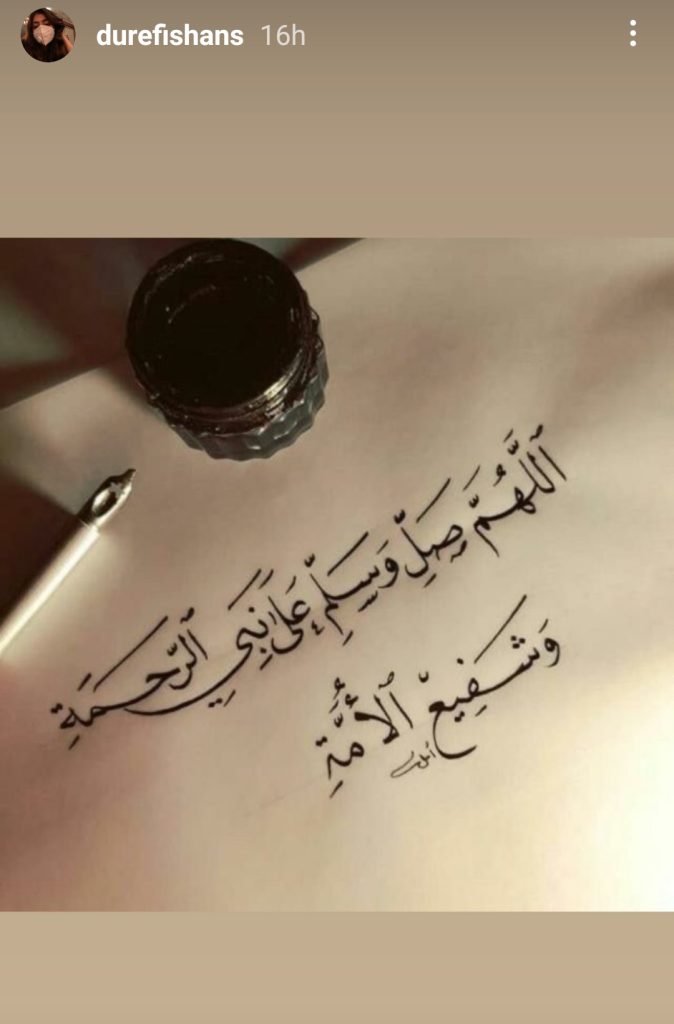 durefishans 16h
اَللّٰهُمَّ صَلِّ وَسَلِّمْ عَلَىٰ نَبِيِ ٱلرَّحمَةِ
وَشَفِيعِ ٱلأُمَّةِ